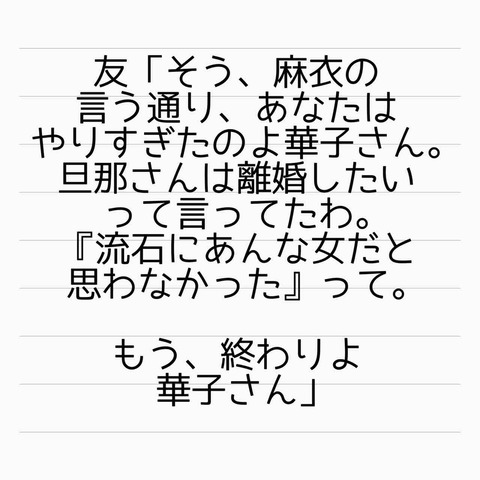 友「そう、麻衣の
言う通り、あなたは
やりすぎたのよ華子さん。
旦那さんは離婚したい
って言ってたわ。
『流石にあんな女だと
思わなかった』って。
もう、終わりよ
華子さん」